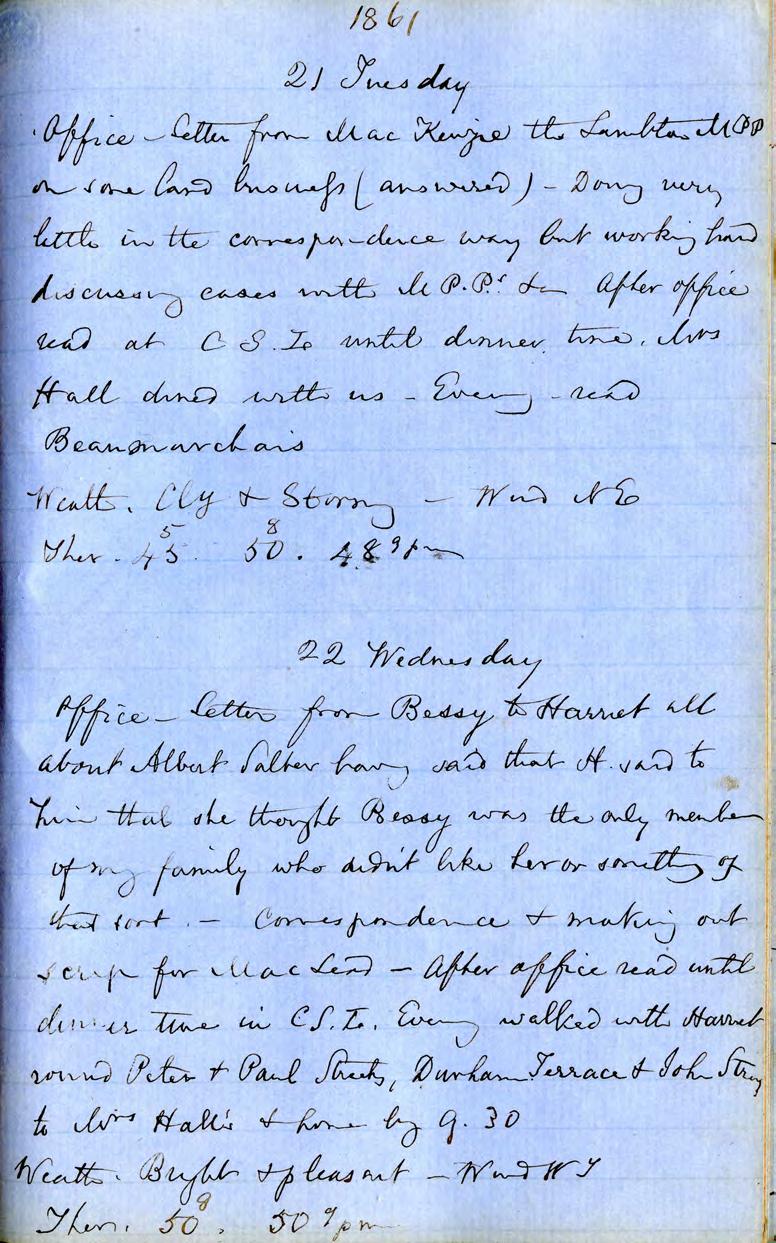 1861
21 Tuesday
Office - Letter from Mac Kenzie the Lambton MPP
on some land business (answered) - Doing very
little in the correspondence way but working hard
discussing cases with M P.P.s &c After office
read at C S. I. until dinner time. Mrs
Hall dined with us - Evening - read
Beaumarchais
Weath. Cly & Stormy - Wind NE
5 8
Ther. 45. 50. 48 9 pm
22 Wednesday
Office - Letter from Bessy to Harriet all
about Albert Salter having said that H. said to
him that she thought Bessy was the only member
of my family who didn't like her or something of
that sort. - Correspondence & making out
scrip for MacLeod - After office read until
dinner time in C S. I. Evening walked with Harriet
round Peter & Paul Streets, Durham Terrace & John Street
to Mrs Hall's & home by 9.30
Weath. Bright & pleasant - Wind
9
Ther. 50. 50 9 pm